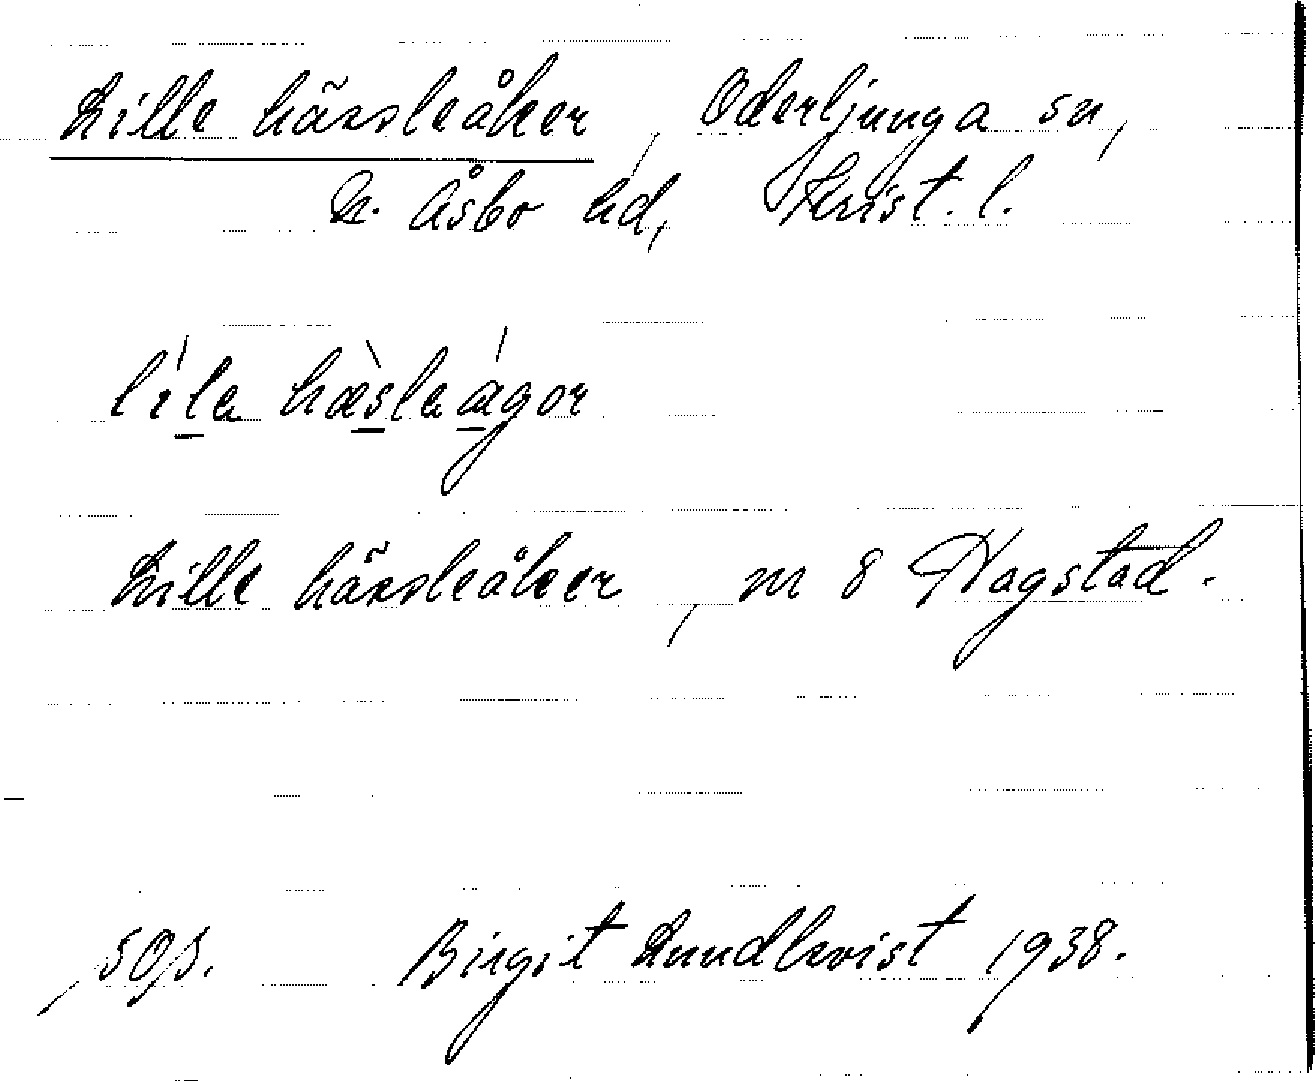 Lille hässleåker, Oderljunga sn,
N. Åsbo hd, Krist. l.
lila hæsleågor
Lille hässleåker, nr 8 Hagstad.
Birgit Lundkvist 1938.